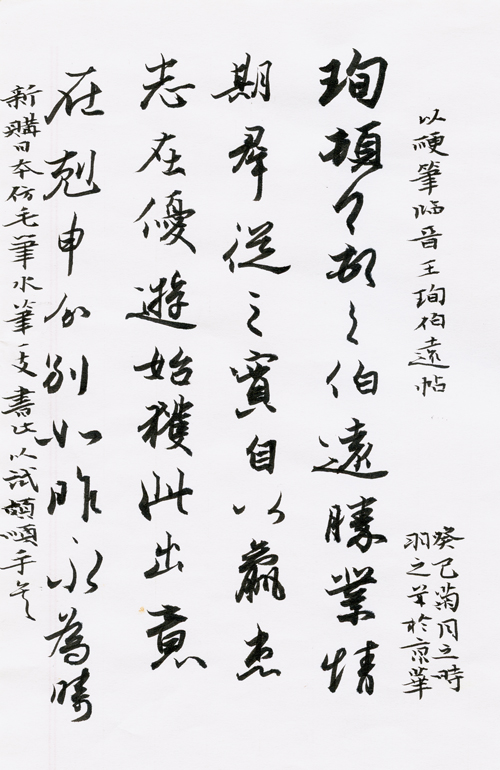 以硬筆临晋王珣伯遠帖
癸巳菊月之時
羽之草於京華
珣頓首頓首伯遠勝業情
期羣從之寳自以羸患
志在優遊始獲此出意
在剋申分别如昨永為疇
新購日本仿毛筆水筆一支書此以試頗順手矣